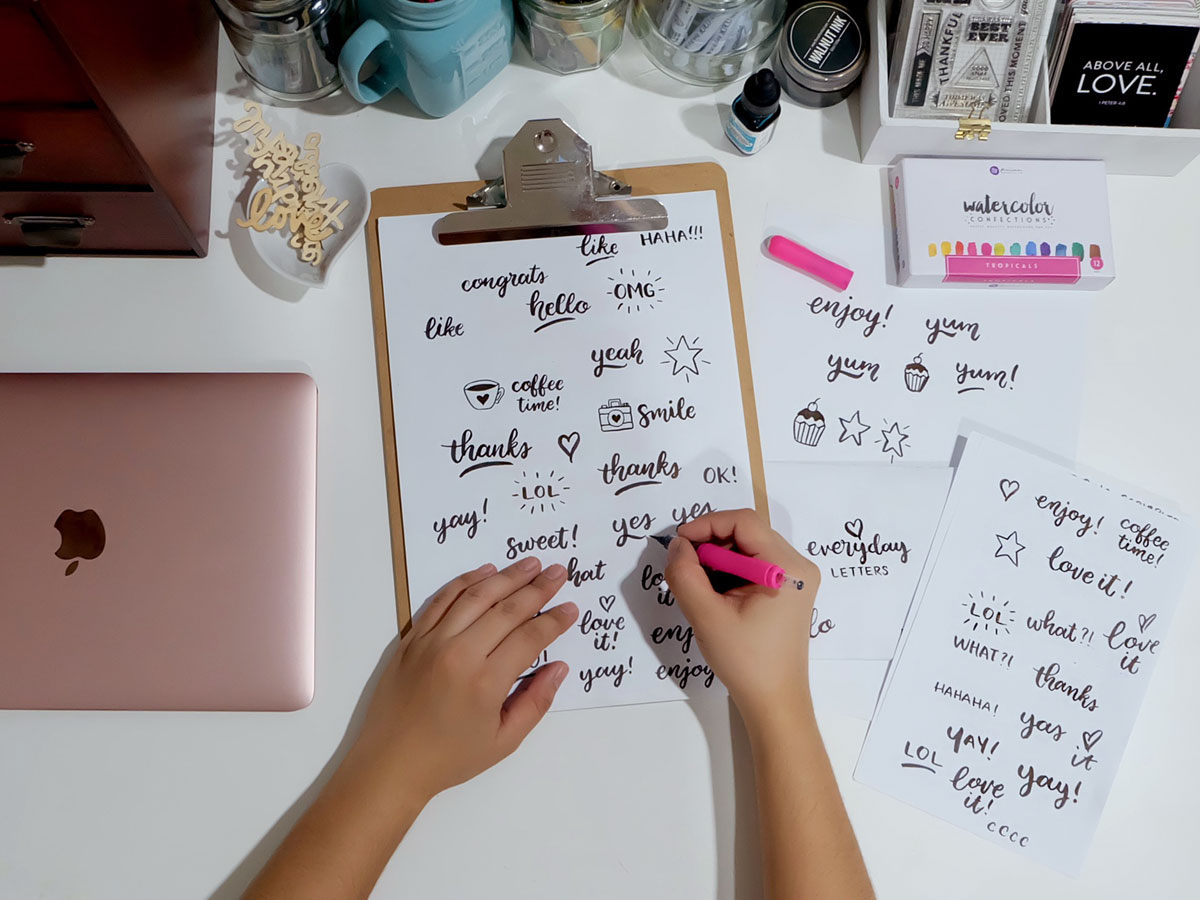 WALNUT INK
THANKFUL
LOVED THIS MOMENT
ABOVE ALL,
LOVE.
1 PETER 4:8
watercolor
CONFECTIONS
TROPICALS
12
like HAHA!!!
congrats
hello OMG
like
yeah
coffee
time!
smile
thanks
thanks OK!
LOL
yay! yes yes
sweet!
love
it!
yay! enjoy
enjoy!
yum
yum
yum!
everyday
LETTERS
enjoy! coffee
time!
love it!
LOL what?! love
it
WHAT?!
thanks
HAHAHA!
yas
it
YAY!
LOL
yay!
love
it!
cccc